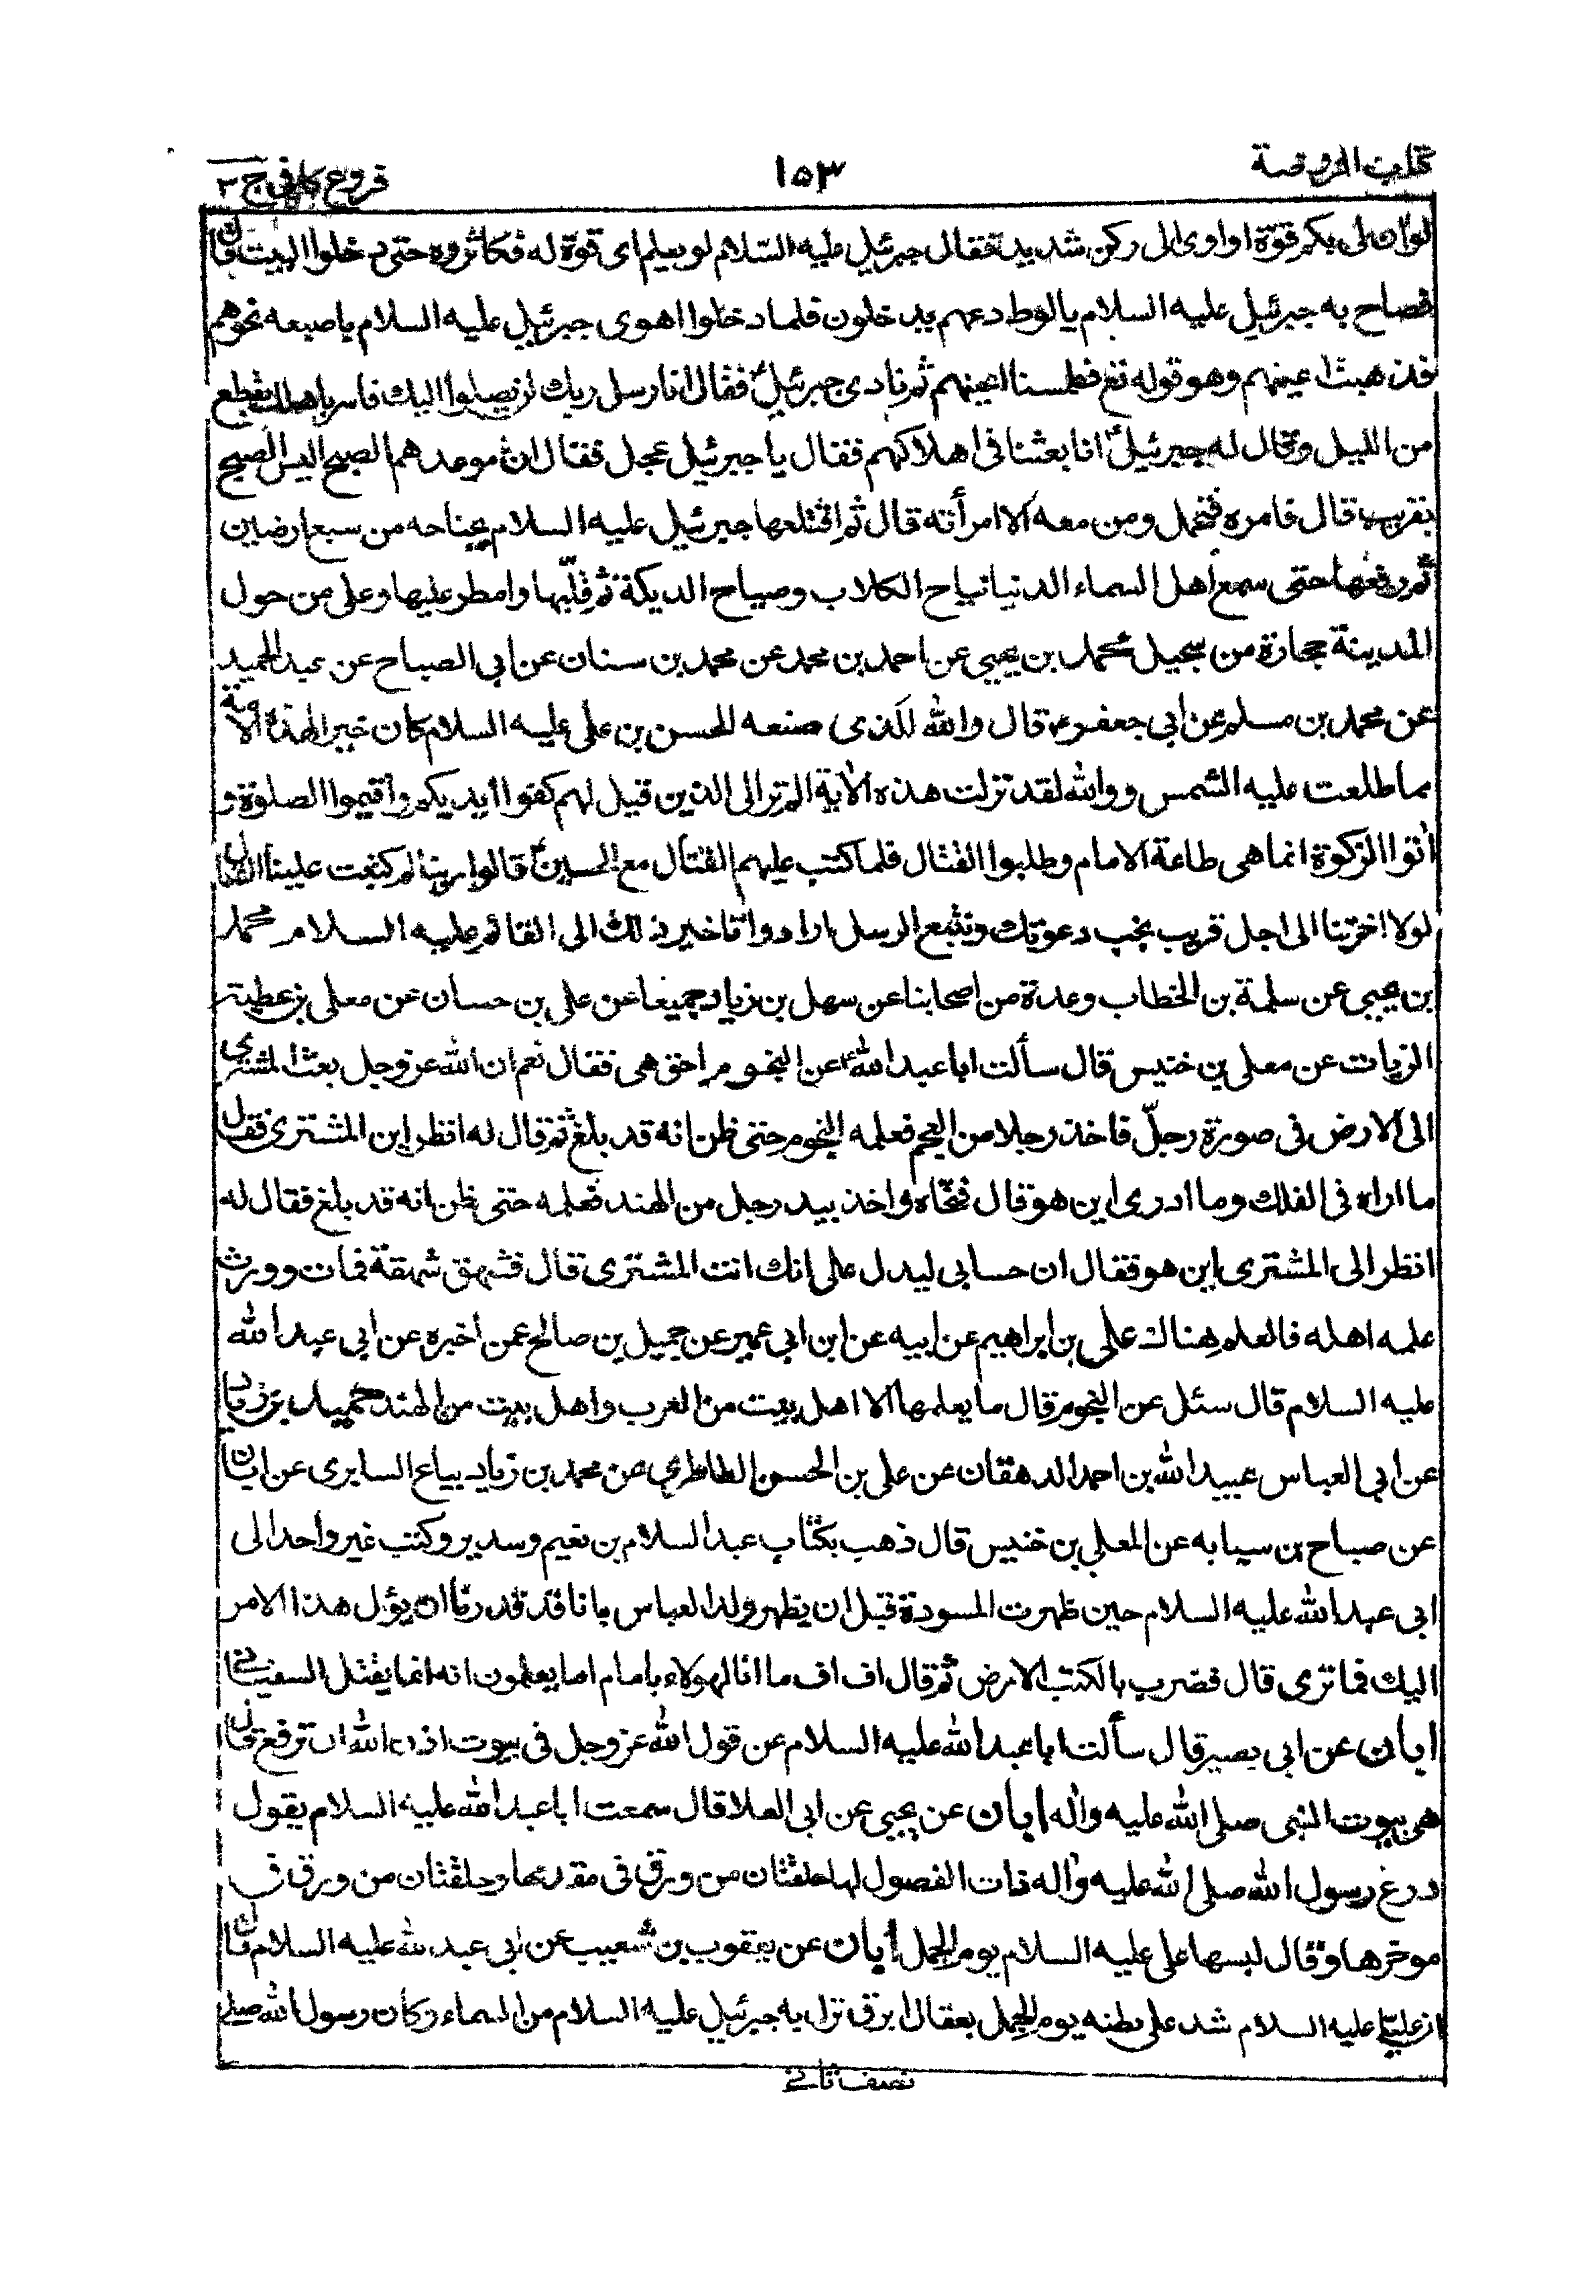 كتاب الروضة
١٥٣
فروع كافي ج ٣
لو ان لى بكم قوة او اوى الى ركن شديد فقال جبرئيل عليه السّلام لو يعلم اى قوة له فكاثروه حتى دخلوا البيت قال
فصاح به جبرئيل عليه السلام يا لوط دعهم يدخلون فلما دخلوا اهوى جبرئيل عليه السلام باصبعه نحوهم
فذهبت اعينهم وهو قوله تع فطمسنا اعينهم ثم نادى جبرئيل ع فقال انا رسل ربك لن يصلوا اليك فاسر باهلك بقطع
من الليل وقال له جبرئيل ع انا بعثنا فى اهلاكهم فقال يا جبرئيل عجل فقال ان موعدهم الصبح اليس الصبح
بقريب قال فامره فتحمل ومن معه الا امرأته قال ثم اقتلعها جبرئيل عليه السلام بجناحه من سبع ارضين
ثم رفعها حتى سمع اهل السماء الدنيا نباح الكلاب وصياح الديكة ثم قلّبها وامطر عليها وعلى من حول
المدينة حجارة من سجيل محمد بن يحيى عن احمد بن محمد عن محمد بن سنان عن ابي الصباح عن عبد الحميد
عن محمد بن مسلم عن ابي جعفر ع قال والله للذى صنعه الحسن بن على عليه السلام كان خيرا لهذه الامة
مما طلعت عليه الشمس ووالله لقد نزلت هذه الاية الم تر الى الذين قيل لهم كفوا ايديكم واقيموا الصلوة و
اتوا الزكوة انما هى طاعة الامام وطلبوا القتال فلما كتب عليهم القتال مع الحسين ع قالوا ربنا لم كتبت علينا القتال
لولا اخرتنا الى اجل قريب نجب دعوتك ونتبع الرسل ارادوا تاخير ذلك الى القائم عليه السلام محمد
بن يحيى عن سلمة بن الخطاب وعدة من اصحابنا عن سهل بن زياد جميعا عن على بن حسان عن معلى بن عطية
الزيات عن معلى بن خنيس قال سألت ابا عبد الله ع عن النجوم احق هى فقال نعم ان الله عز وجل بعث المشترى
الى الارض فى صورة رجلّ فاخذ رجلا من العجم فعلمه النجوم حتى ظن انه قد بلغ ثم قال له انظر اين المشترى فقال
ما اراه فى الفلك وما ادرى اين هو قال فنحّاه واخذ بيد رجل من الهند فعلمه حتى ظن انه قد بلغ فقال له
انظر الى المشترى اين هو فقال ان حسابى ليدل على انك انت المشترى قال فشهق شهقة فمات وورث
علمه اهله فالعلم هناك على بن ابراهيم عن ابيه عن ابن ابى عمير عن جميل بن صالح عمن اخبره عن ابى عبد الله
عليه السلام قال سئل عن النجوم قال ما يعلمها الا اهل بيت من العرب واهل بيت من الهند حميد بن زياد
عن ابي العباس عبيد الله بن احمد الدهقان عن على بن الحسن الطاطرى عن محمد بن زياد بياع السابرى عن ابان
عن صباح بن سيابه عن المعلى بن خنيس قال ذهب بكتاب عبد السلام بن نعيم وسدير وكتب غير واحد الى
ابى عبد الله عليه السلام حين ظهرت المسودة قبل ان يظهر ولد العباس بانا قد قدرنا ان يؤل هذا الامر
اليك فما ترى قال فضرب بالكتب الارض ثم قال اف اف ما انا لهؤلاء بامام اما يعلمون انه انما يقتل السفيانى
ابان عن ابى بصير قال سألت ابا عبد الله عليه السلام عن قول الله عز وجل فى بيوت اذن الله ان ترفع قال
هى بيوت النبى صلى الله عليه واله ابان عن يحيى عن ابى العلا قال سمعت ابا عبد الله عليه السلام يقول
درع رسول الله صلى الله عليه واله ذات الفضول لها حلقتان من ورق فى مقدمها وحلقتان من ورق فى
موخرها وقال لبسها على عليه السلام يوم الجمل ابان عن يعقوب بن شعيب عن ابى عبد الله عليه السلام قال
ان عليّا عليه السلام شد على بطنه يوم الجمل بعقال ابرق نزل به جبرئيل عليه السلام من السماء وكان رسول الله صلى
نصف ثانى